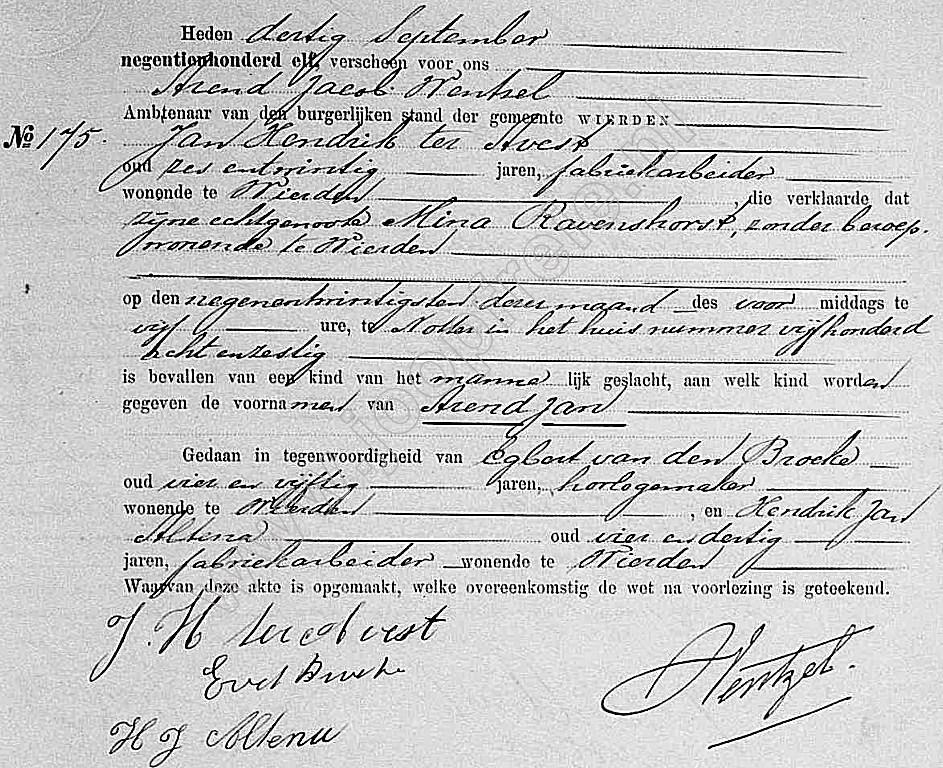 Heden dertig September
negentienhonderd elf, verscheen voor ons
Arend Jacob Wentzel
Ambtenaar van den burgerlijken stand der gemeente WIERDEN
№ 175. Jan Hendrik ter Avest
oud zes en twintig jaren, fabriekarbeider
wonende te Wierden, die verklaarde dat
zijne echtgenoote Mina Ravenshorst, zonder beroep,
wonende te Wierden
op den negenentwintigsten dezer maand des voor middags te
vijf ure, te Notter in het huis nummer vijfhonderd
acht en zestig
is bevallen van een kind van het manne lijk geslacht, aan welk kind worden
gegeven de voornamen van Arend Jan
Gedaan in tegenwoordigheid van Egbert van den Broeke
oud vier en vijftig jaren, horlogemaker
wonende te Wierden, en Hendrik Jan
Altena oud vier en dertig
jaren, fabriekarbeider wonende te Wierden
Waarvan deze akte is opgemaakt, welke overeenkomstig de wet na voorlezing is geteekend.
J. H ter Avest
Wentzel.
H J Altena